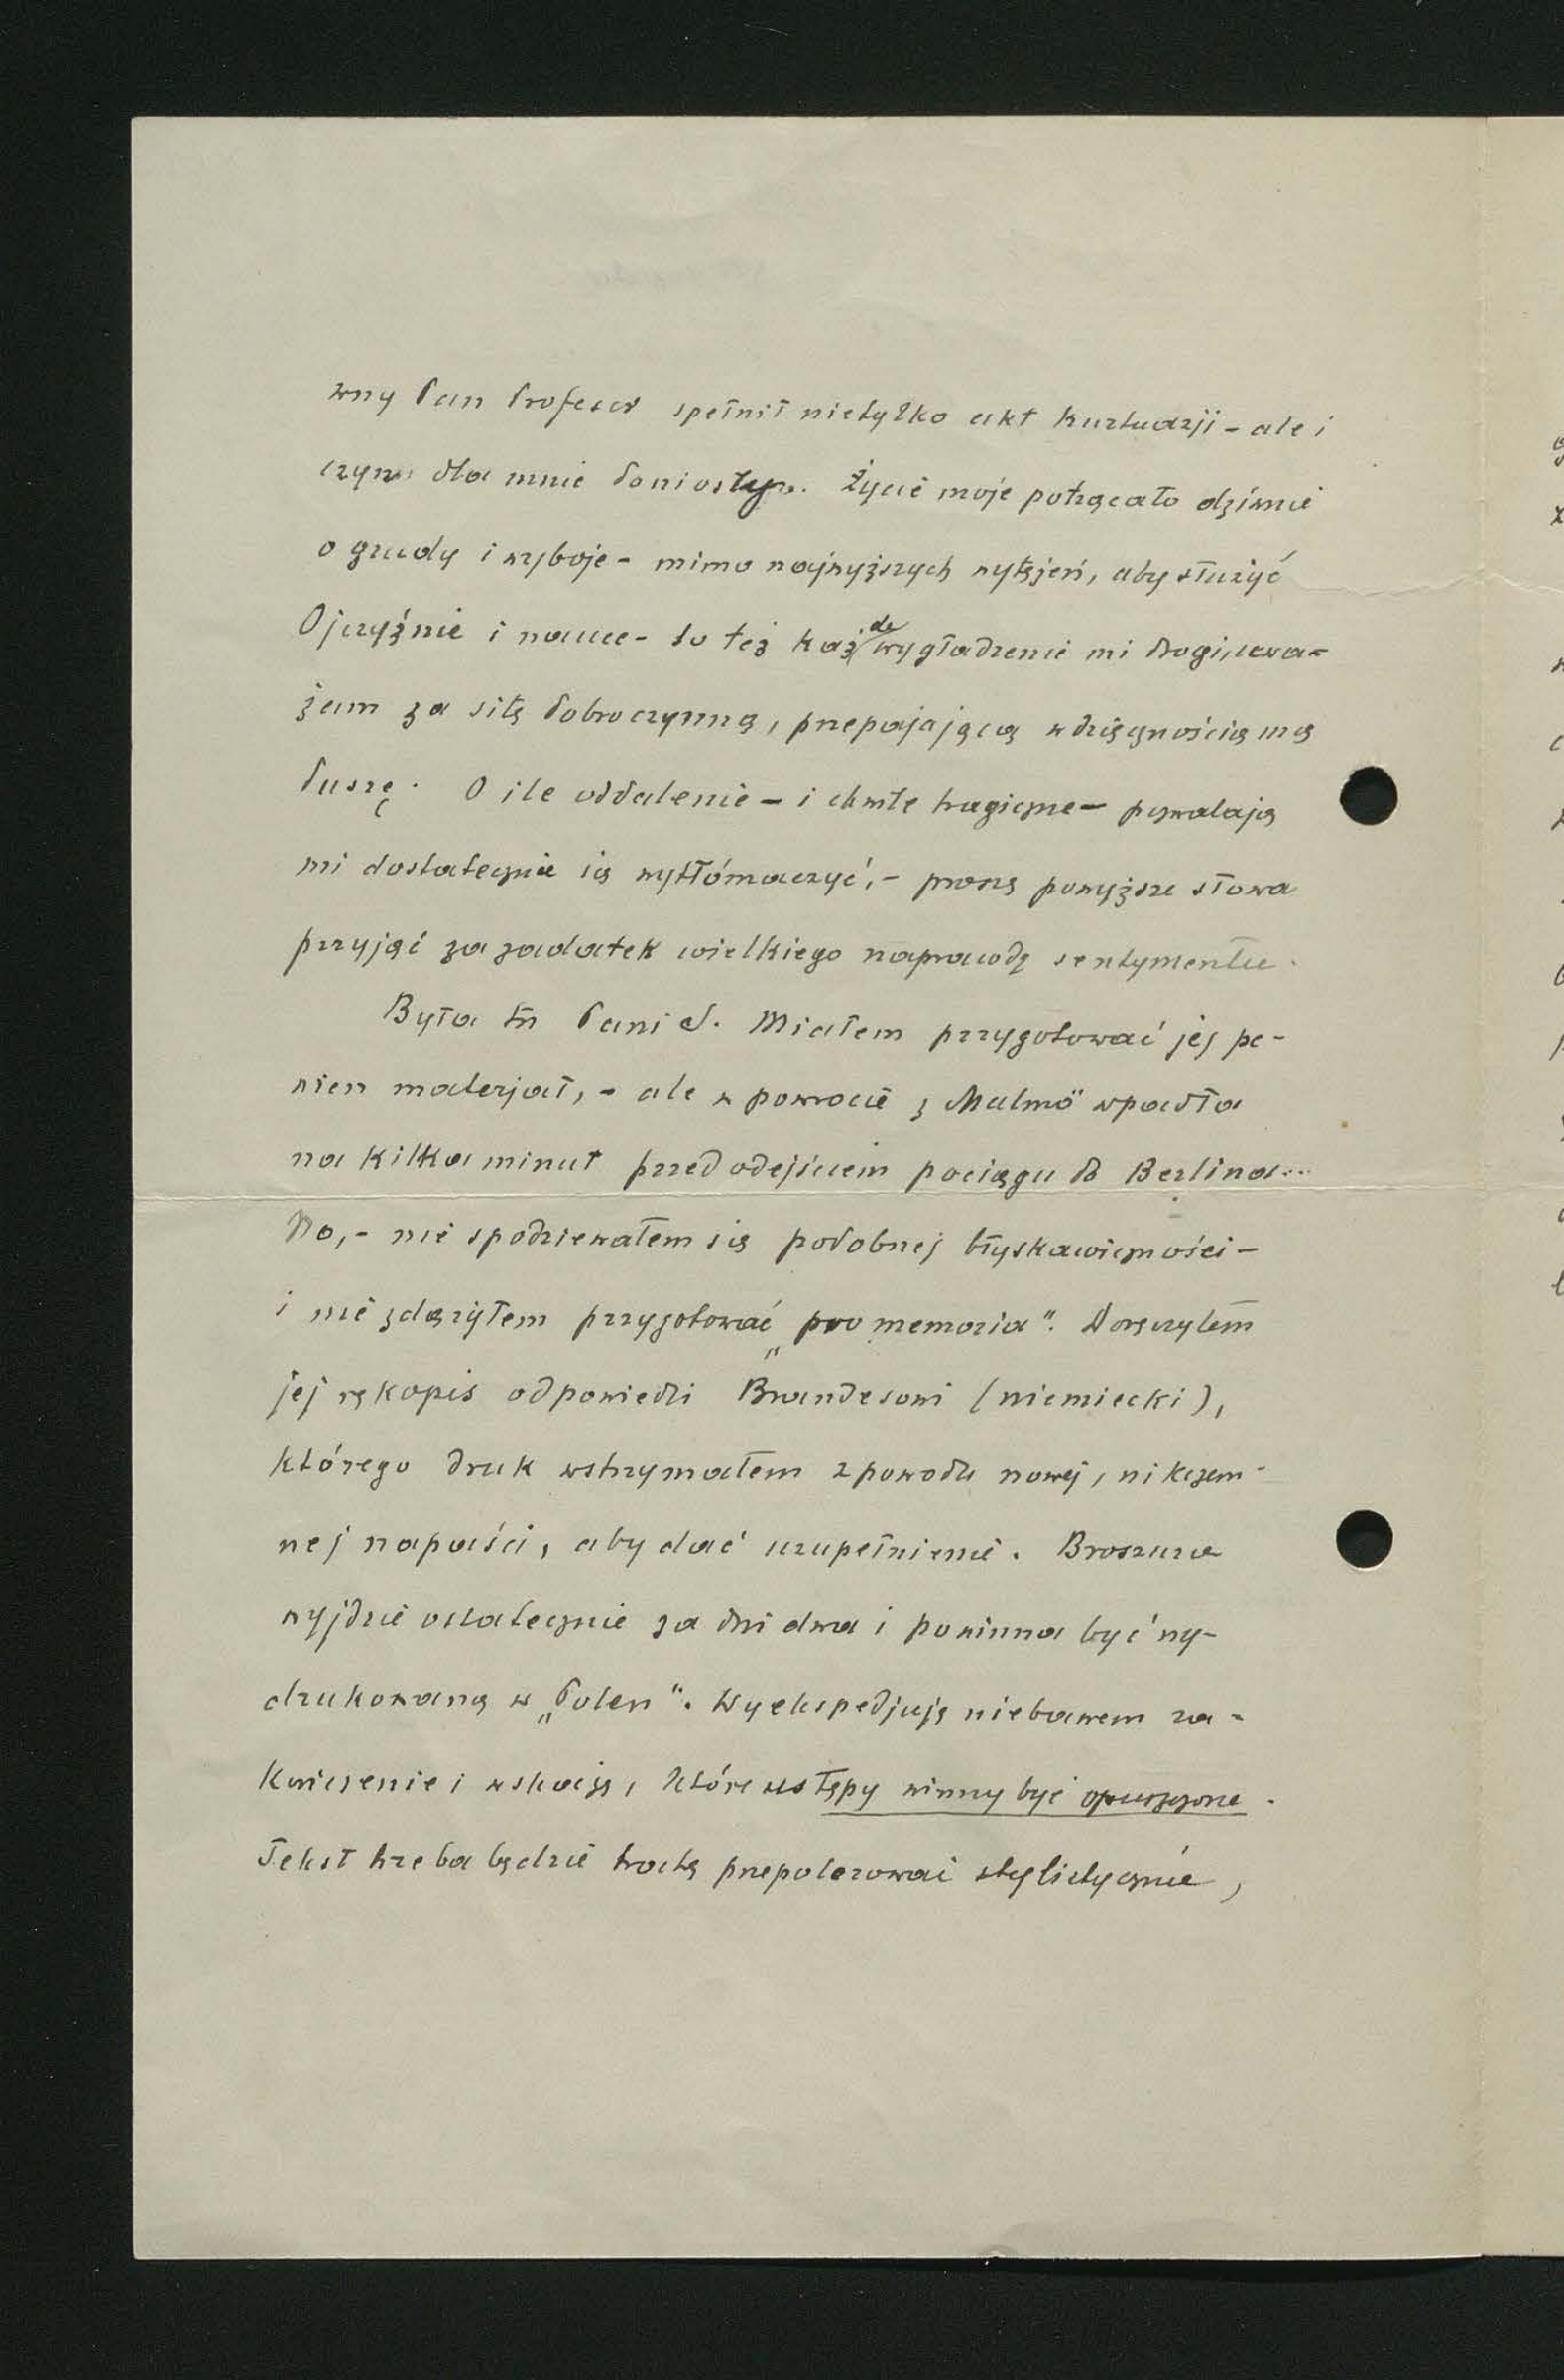 wny Pan Profesor spełnił nietylko akt kurtuazji - ale i
czyn dla mnie doniosłym. Życie moje potrącało dziwnie
o grudy i wyboje - mimo najwyższych wytężeń, aby służyć
Ojczyźnie i nauce - to też każde wygładzenie mi drogi, uwa-
żam za siłę dobroczynną, przepajającą wdzięcznością mą
duszę. O ile oddalenie - i chwile tragiczne - pozwalają
mi dostatecznie się wytłómaczyć, - proszę powyższe słowa
przyjąć za zadatek wielkiego naprawdę sentymentu.
Była tu Pani d. Miałem przygotować jej pe-
wien materjał, - ale w powrocie z Malmö wpadła
na kilka minut przed odejściem pociągu do Berlina...
No, - nie spodziewałem się podobnej błyskawiczności -
i nie zdążyłem przygotować „pro memoria". Doręczyłem
jej rękopis odpowiedzi Brandesowi (niemiecki),
którego druk wstrzymałem z powodu nowej, nikczem-
nej napaści, aby dać uzupełnienie. Broszura
wyjdzie ostatecznie za dni dwa i powinna być wy-
drukowaną w „Polen". Wyekspedjuję niebawem za-
kończenie i wskażę, które ustępy winny być opuszczone.
Tekst trzeba będzie trochę przepolerować stylistycznie,